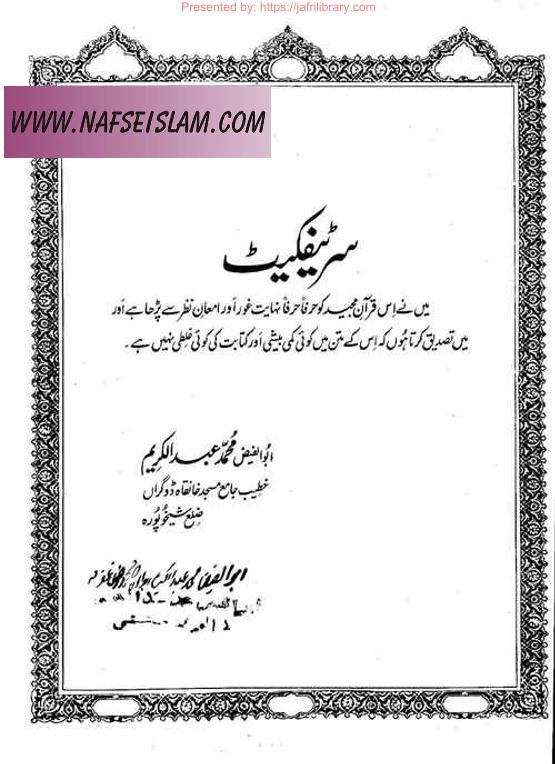 Presented by: https://jafrilibrary.com
WWW.NAFSEISLAM.COM
سرٹیفکیٹ
میں نے اِس قرآنِ مجید کو حرفاً حرفاً نہایت غور اَور امعانِ نظر سے پڑھا ہے اَور
میں تصدیق کرتا ہُوں کہ اِس کے متن میں کوئی کمی بیشی اَور کتابت کی کوئی غلطی نہیں ہے۔
ابوالفیض مُحمّد عبدالکریم
خطیب جامع مسجد خانقاہ ڈوگراں
ضِلع شیخُوپُورہ
ابوالفیض محمد عبدالکریم